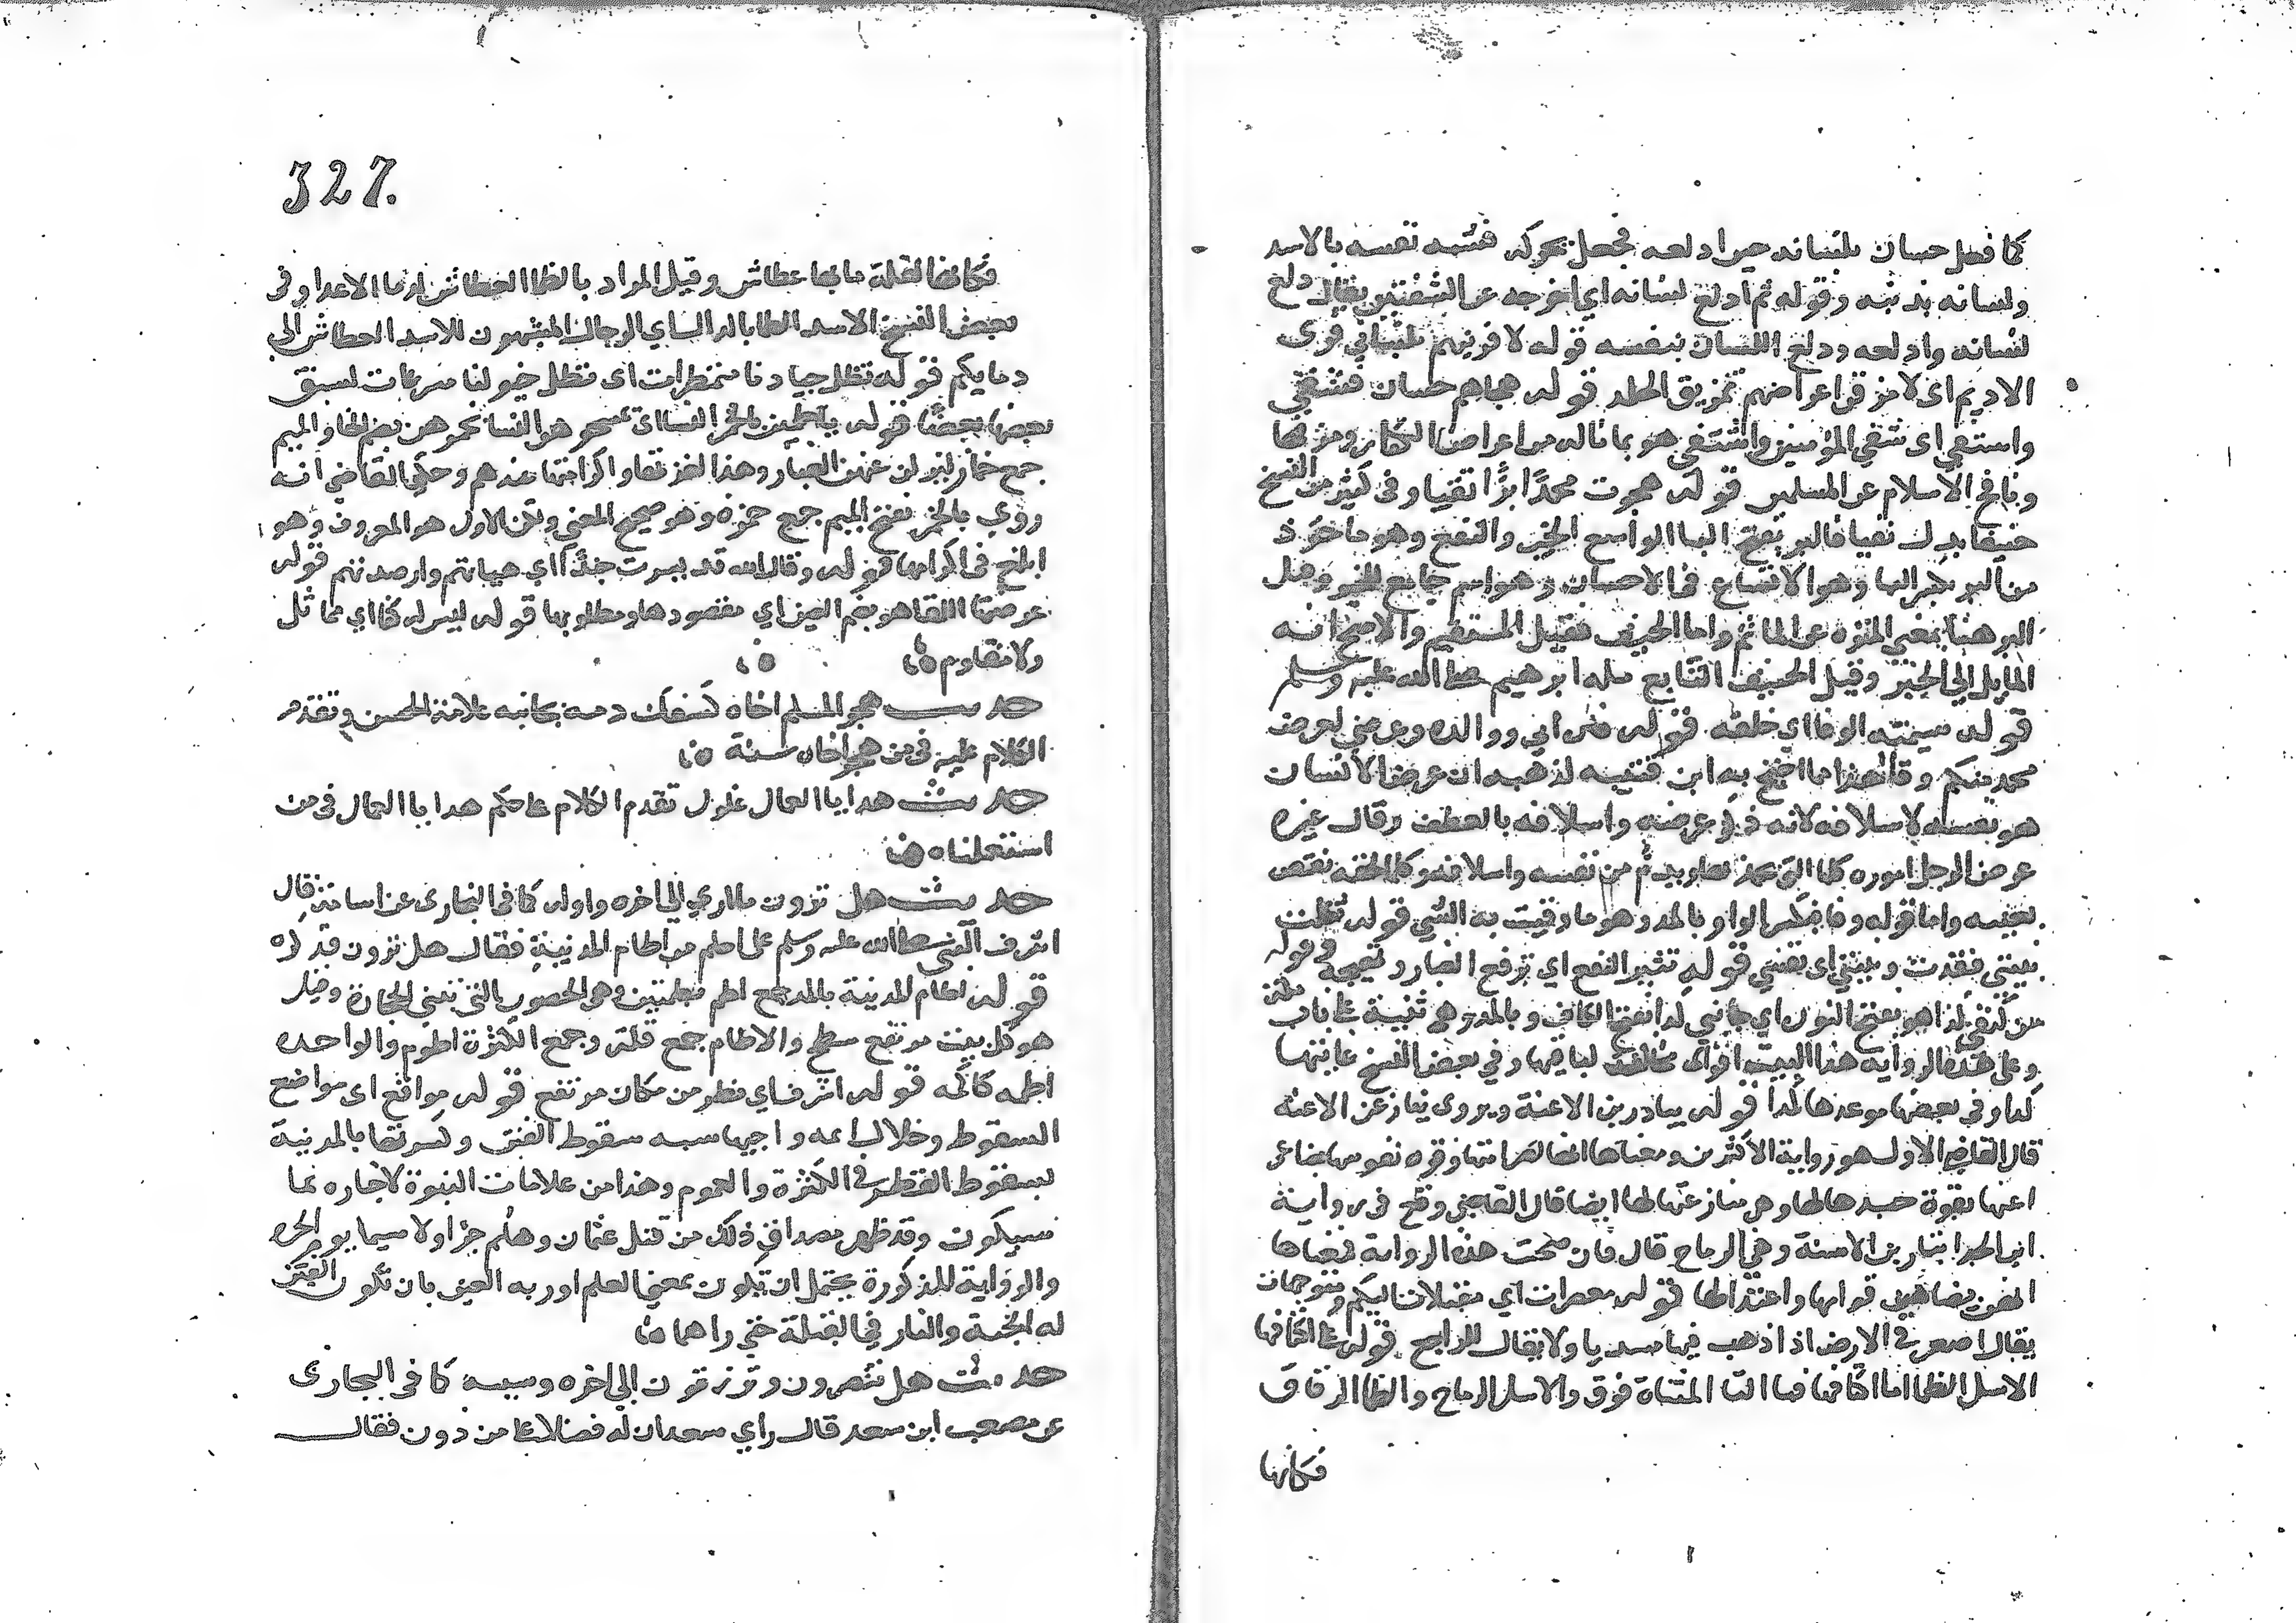 كما فعل حسان بلسانه حين ادلعه فجعل يحركه فشبه نفسه بالاسد
ولسانه بذنبه وقوله ثم ادلع لسانه اي اخرجه عن الشفتين يقال دلع
لسانه وادلعه ودلع اللسان بنفسه قوله لافرينهم بلساني فري
الاديم اى لامزقن اعراضهم تمزيق الجلد قوله هجاهم حسان فشفي
واستفي اى شفي المؤمنين واشتفي هو بما ناله من اعراض الكفار ومزقها
ونافح الاسلام عن المسلمين قوله هجوت محمدًا برًّا تقيا وفى كثير من النسخ
حنيفا بدل تقيا فالبر بفتح البا الواسع الخير والنفع وهو ماخوذ
من البر بكسر البا وهو الاتساع فى الاحسان وهو اسم جامع للخير وقيل
البر هنا بمعني المتنزه عن الماثم واما الحنيف فقيل المستقيم والاصح انه
المايل الي الخير وقيل الحنيف التابع مله ابرهيم صلى الله عليه وسلم
قوله سيمته الوفا اي خلقه قوله فان ابي ووالده وعرضي لعرض
محمد منكم وقا هذا مما احتج به ابن قتيبه لذهبه ان عرض الانسان
هو نفسه لا اسلافه لانه ذكر عرضه واسلافه بالعطف وقال غيره
عرض الرجل اموره كلها التي يحمد بها ويذم من نفسه واسلافه وكل ما لحقه نقص
بعيبه واما قوله وقا فبكسر الواو وبالمد وهو ما وقيت به الشي قوله ثكلت
بنيتي فقدت وبنيتي اى نفسي قوله تثير النقع اي ترفع الغبار وتهيجه قوله
من كنفي كدا هو بفتح النون اي جانبي كدا بفتح الكاف وبالمد وهي ثنية على باب مكة
وعلى هذه الرواية هذا البيت اقوا مخالف لباقيها وفي بعض النسخ غايتها
كدا وفى بعضها موعدها كدا قوله يبادرين الاعنة ويروى ينازعن الاعنه
قال القاضي الاول هو رواية الاكثرين ومعناها انها لصرامتها وقوه نفوسها تضاهى
اعنها بقوة جبدها لها وهى منازعتها لها ايضا قال القاضي وقع فى رواية
ابن الحذا يبارين الاسنة وهي الرماح قال فان صحت هذه الرواية فمعناها
انهن يضاهين قوامها واعتدالها قوله مصعدات اي مقبلات اليكم ومتوجهات
يقال اصعد في الارض اذا ذهب فيها مبتديا ولا يقال للراجع قوله على اكتافها
الاسل الظما اما اكتافها فبا التا المثناة فوق والاسل الرماح والظما الرقاق
فكانها
327.
فكانها لقلة مايها عطاش وقيل المراد بالظما العطاش لدما الاعدا وفى
بعض النسخ الاسد الظما بالدال اي الرجال المشبهون للاسد العطاش الي
دمايكم قوله تظل جيادنا متمطرات اى تظل خيولنا سرعات لسبق
بعضها بعضًا قوله يلطمهن بالخمر النسا اى تمسحهن النسا بخمرهن بضم الخا والميم
جمع خمار ليزلن عنهن الغبار وهذا لعزتها واكرامها عندهم وحكي القاضي انه
روي بالخمر بفتح الميم جمع خمره وهو صحيح المعني ولكن الاول هو المعروف وهو
ابلغ فى اكرامها قوله وقال الله قد يسرت جندًا اي هياتهم وارصدتهم قوله
عرضتها اللقا هو بضم العين اي مقصودها ومطلوبها قوله ليس له كفا اي مماثل
ولا مقاوم
حديث هجو المسلم اخاه كسفك دمه بجانبه علامة الحسن وتقدم
الكلام عليه فى من هجر اخاه سنة
حديث هدايا العمال غلول تقدم الكلام على حكم هدايا العمال فى من
استعملناه
حديث هل ترون ما اري الي اخره واوله كما في البخارى عن اسامة قال
اشرف النبي صلى الله عليه وسلم على اطم من اطام المدينة فقال هل ترون فذكره
قوله اطام المدينة بالمد جمع اطم بضمتين وهى الحصون التي تبني بالحجارة وقيل
هو كل بيت مربع مسطح والاطام جمع قلة وجمع الكثرة اطوم والواحده
اطمه كاكمه قوله اشرف اي نظر من مكان مرتفع قوله مواقع اى مواضع
السقوط وخلال اى نواحيها شبه سقوط الفتن وكثرتها بالمدينة
بسقوط القطر في الكثرة والعموم وهذا من علامات النبوة لاخباره بما
سيكون وقد ظهر مصداق ذلك من قتل عثمان وهلم جرا ولا سيما يوم الحره
والرواية المذكورة يحتمل ان تكون بمعني العلم او رويه العين بان تكون الفتن مثلت
له الجنة والنار في القبلة حتي راهما
حديث هل تنصرون وترزقون الي اخره وسببه كما فى البخارى
عن مصعب ابن سعد قال راي سعد ان له فضلا على من دون فقال